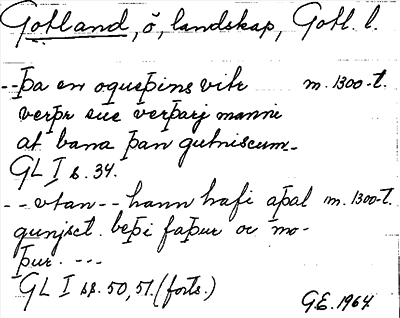 Gotland, ö, landskap, Gotl. l.
-- Þa en oqueþins vitr m. 1300-t.
verþr eue verþarj manni
at bana þan gutniscum_
GL I s. 34.
-- vtan -- hann hafi aþal m. 1300-t.
gunjsct. beþi faþur oc mo-
þur. ---
GL I ss. 50, 51. (forts.)
G.E. 1964